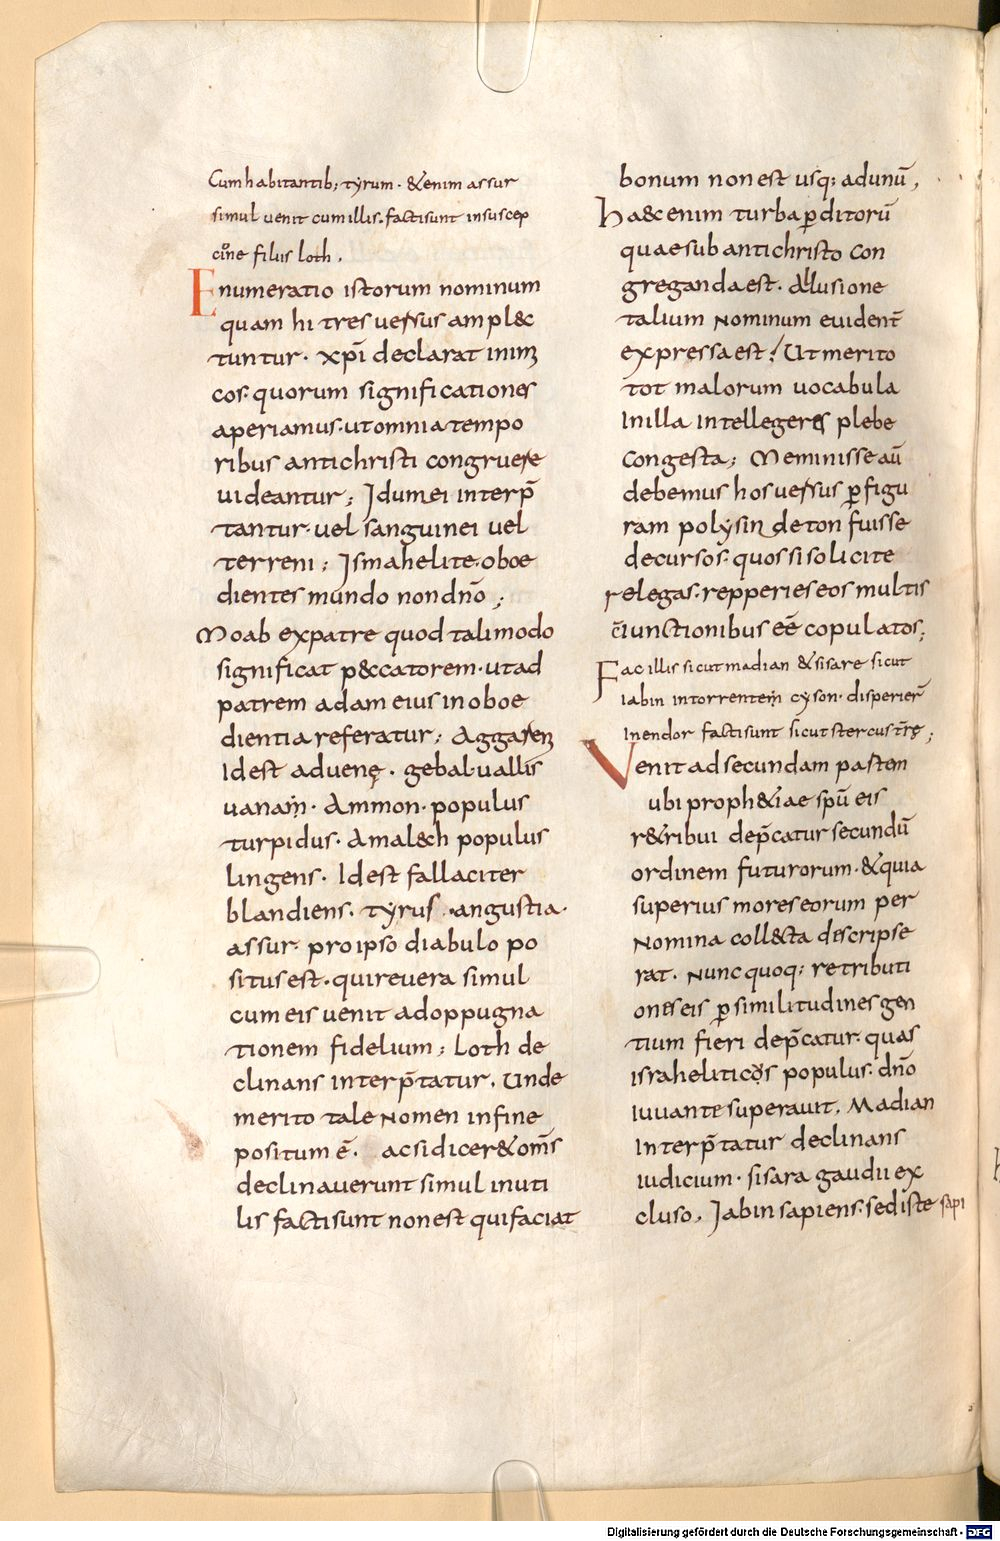 Cum habitantib; tyrum · & enim assur
simul uenit cum illis. facti sunt in suscep
cione filiis loth.
Enumeratio istorum nominum
quam hi tres uersus ampl&c
tuntur · xp̄i declarat inimi
cos · quorum significationes
aperiamus · ut omnia tempo
ribus antichristi congruere
uideantur ; Idumei interp̄
tantur · uel sanguinei uel
terreni ; Ismahelite · oboe
dientes mundo non dn̄o ;
Moab ex patre quod tali modo
significat p&ccatorem · ut ad
patrem adam eius inoboe
dientia referatur ; Aggareni
Id est aduenę · gebal · uallis
uanam · Ammon · populus
turpidus · Amal&ch populus
lingens · Id est fallaciter
blandiens · tyrus · angustia ·
assur · pro ipso diabulo po
situs est · qui reuera simul
cum eis uenit ad oppugna
tionem fidelium ; Loth de
clinans interp̄tatur. Unde
merito tale nomen in fine
positum ē · ac si dicer& om̄s
declinauerunt simul inuti
lis facti sunt non est qui faciat
bonum non est usq; ad unū,
ha&c enim turba ꝑditorū
quae sub antichristo con
greganda est · Allusione
talium nominum euident̄
expressa est ! Ut merito
tot malorum uocabula
In illa intellegeres plebe
congesta ; Meminisse aū
debemus hos uersus ꝑ figu
ram polysin deton fuisse
decursos · quos si solicite
relegas · repperies eos multis
c̄iunctionibus eē copulatos ;
Fac illis sicut madian & sisare sicut
iabin in torrentem cyson · disperier̄
In endor facti sunt sicut stercus t̄rę ;
Venit ad secundam partem
ubi proph&iae spū eis
r&ribui dep̄catur secundū
ordinem futurorum · & quia
superius mores eorum per
nomina coll&cta descripse
rat. Nunc quoq; retributi
ones eis ꝑ similitudines gen
tium fieri dep̄catur · quas
israheliticos populus · dn̄o
iuuante superauit. Madian
Interp̄tatur declinans
iudicium · sisara gaudii ex
cluso. Iabin sapiens · sed iste sapi
Digitalisierung gefördert durch die Deutsche Forschungsgemeinschaft - DFG